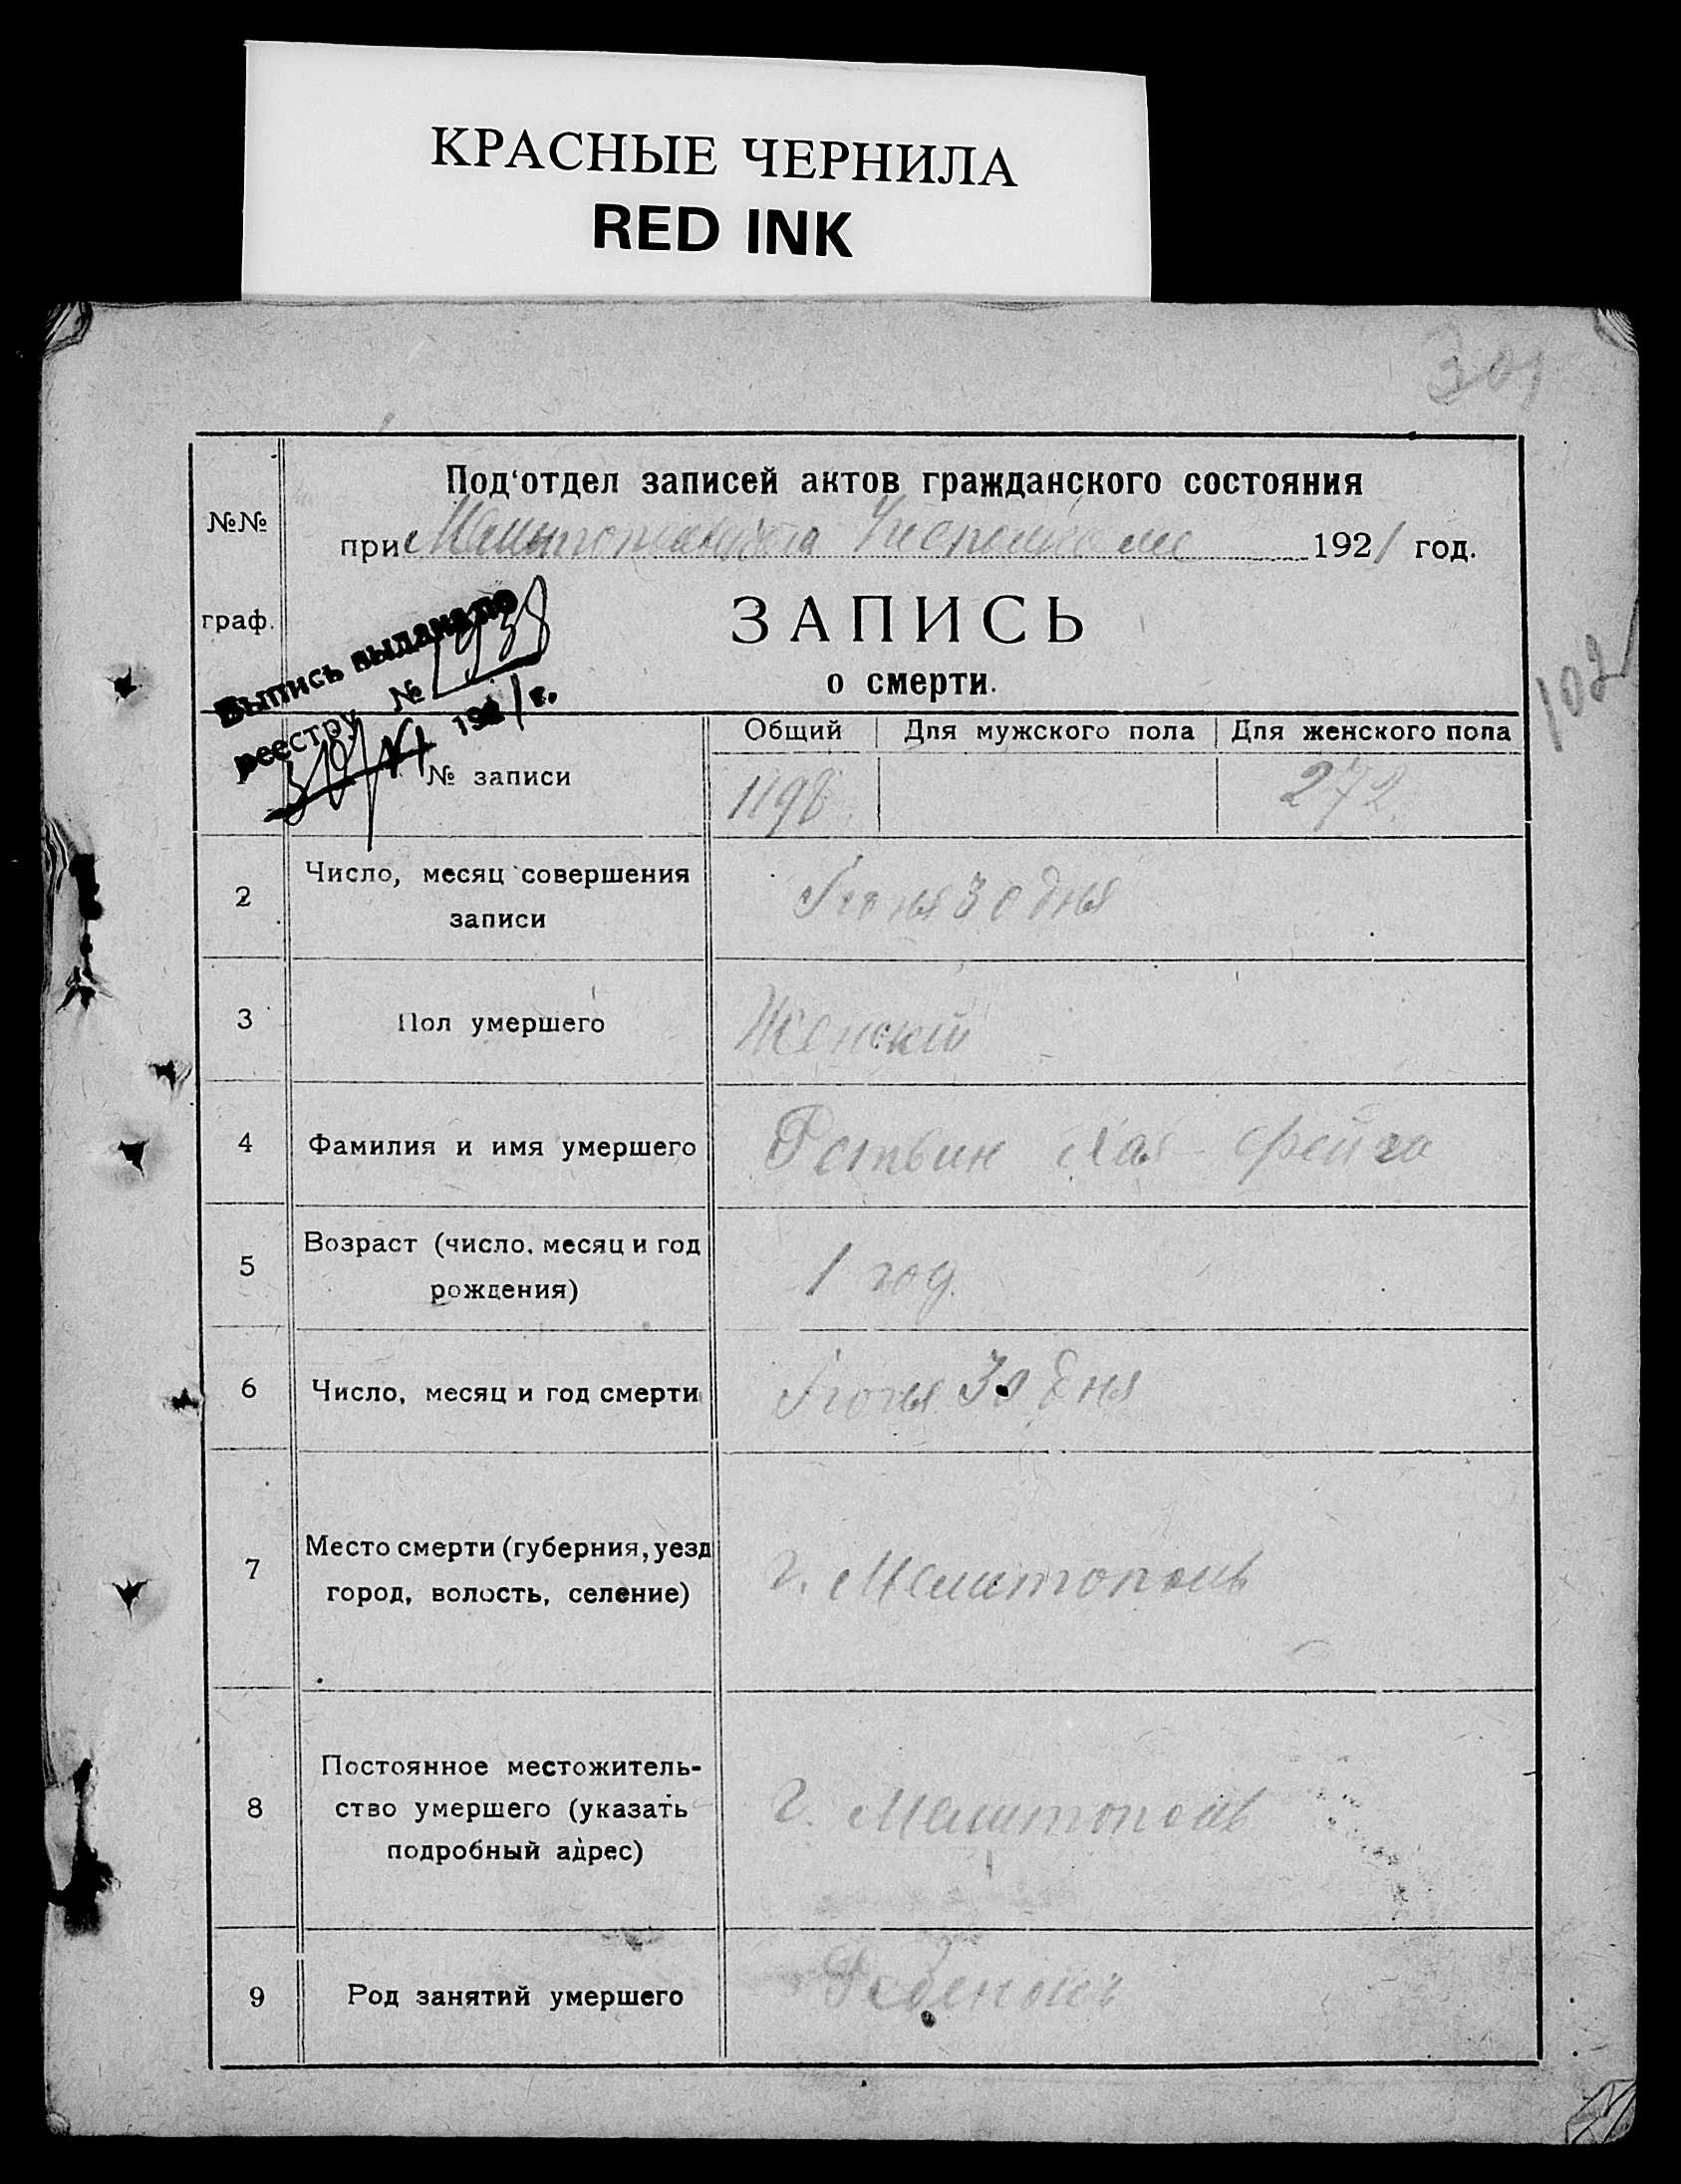 КРАСНЫЕ ЧЕРНИЛА
RED INK
301
Под‘отдел записей актов гражданского состояния
№№
при Мелитопольского 1921 год.
граф.
ЗАПИСЬ
о смерти.
102
Выпись выдана по
реестру № 1938
1921 г.
Общий Для мужского пола Для женского пола
№ записи 1198 272.
2 Число, месяц совершения
записи
Іюня 30 дня
3 Пол умершего Женский
4 Фамилия и имя умершего Хая Фейга
5 Возраст (число, месяц и год
рождения)
1 год.
6 Число, месяц и год смерти Іюня 30 дня
7 Место смерти (губерния, уезд
город, волость, селение)
г. Мелитополь
8 Постоянное местожитель-
ство умершего (указать
подробный адрес)
г. Мелитополь
9 Род занятий умершего Ребенок